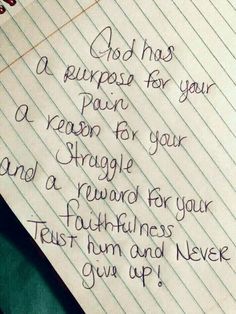 God has
a purpose for your
Pain
a reason for your
Struggle
and a reward for your
faithfulness
TRUST him and NEVER
give up!